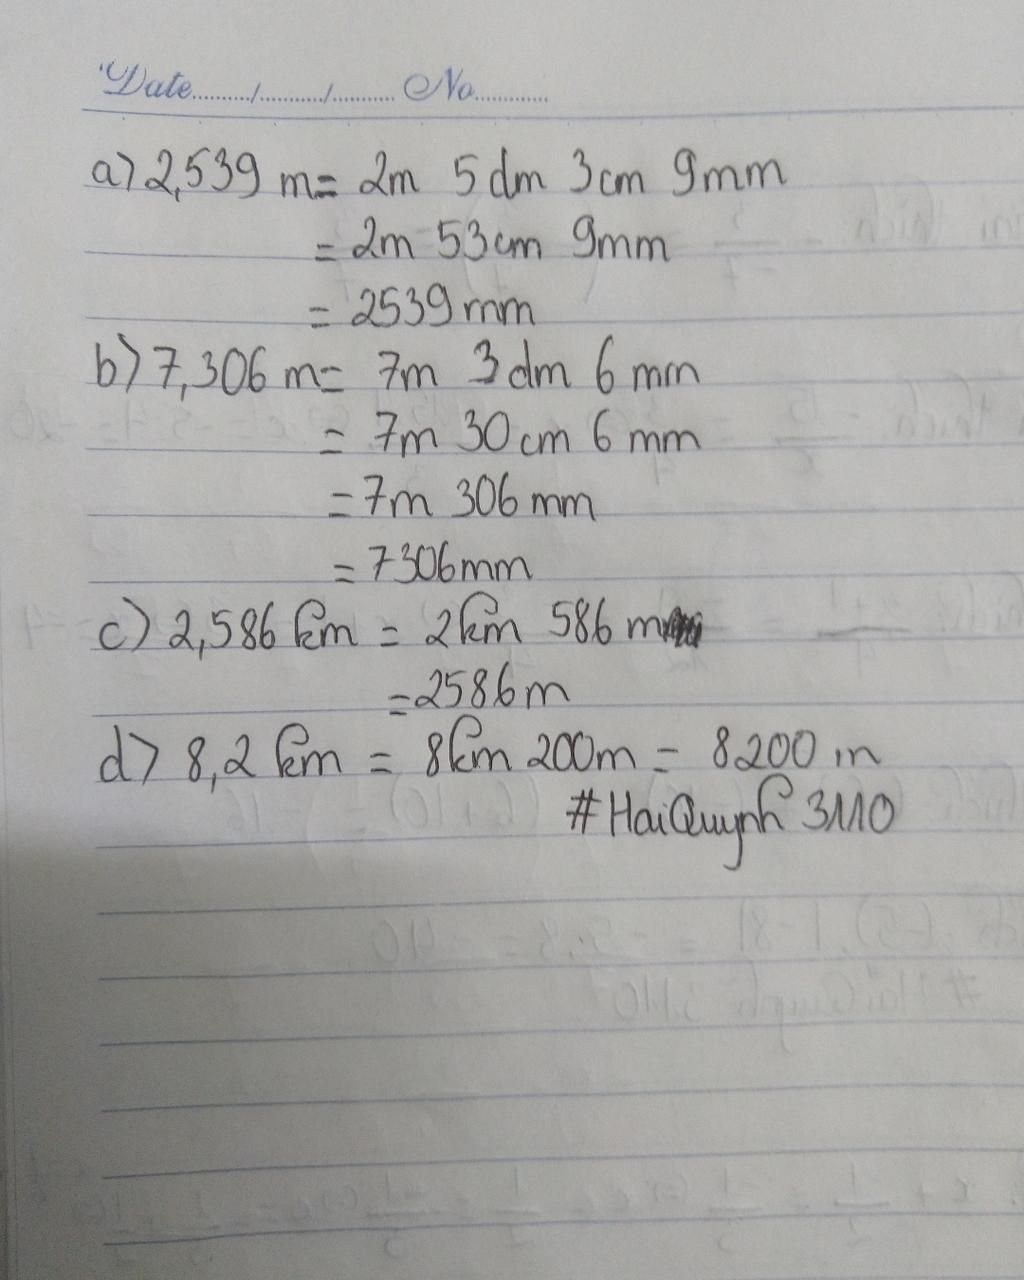 Date............/............/............ No.............
a) 2,539 m = 2m 5 dm 3 cm 9mm
= 2m 53 cm 9mm
= 2539 mm
b) 7,306 m = 7m 3 dm 6 mm
= 7m 30 cm 6 mm
= 7m 306 mm
= 7306mm
c) 2,586 km = 2km 586 m
= 2586 m
d) 8,2 km = 8km 200m = 8200 m
#HaiQuynh 3110